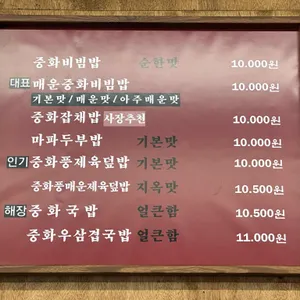 중화비빔밥 순한맛 10.000원
대표 매운중화비빔밥 10.000원
기본맛/매운맛/아주매운맛
중화잡채밥 사장추천 10.000원
마파두부밥 기본맛 10.000원
인기 중화풍제육덮밥 기본맛 10.000원
중화풍매운제육덮밥 지옥맛 10.500원
해장 중화국밥 얼큰함 10.500원
중화우삼겹국밥 얼큰함 11.000원